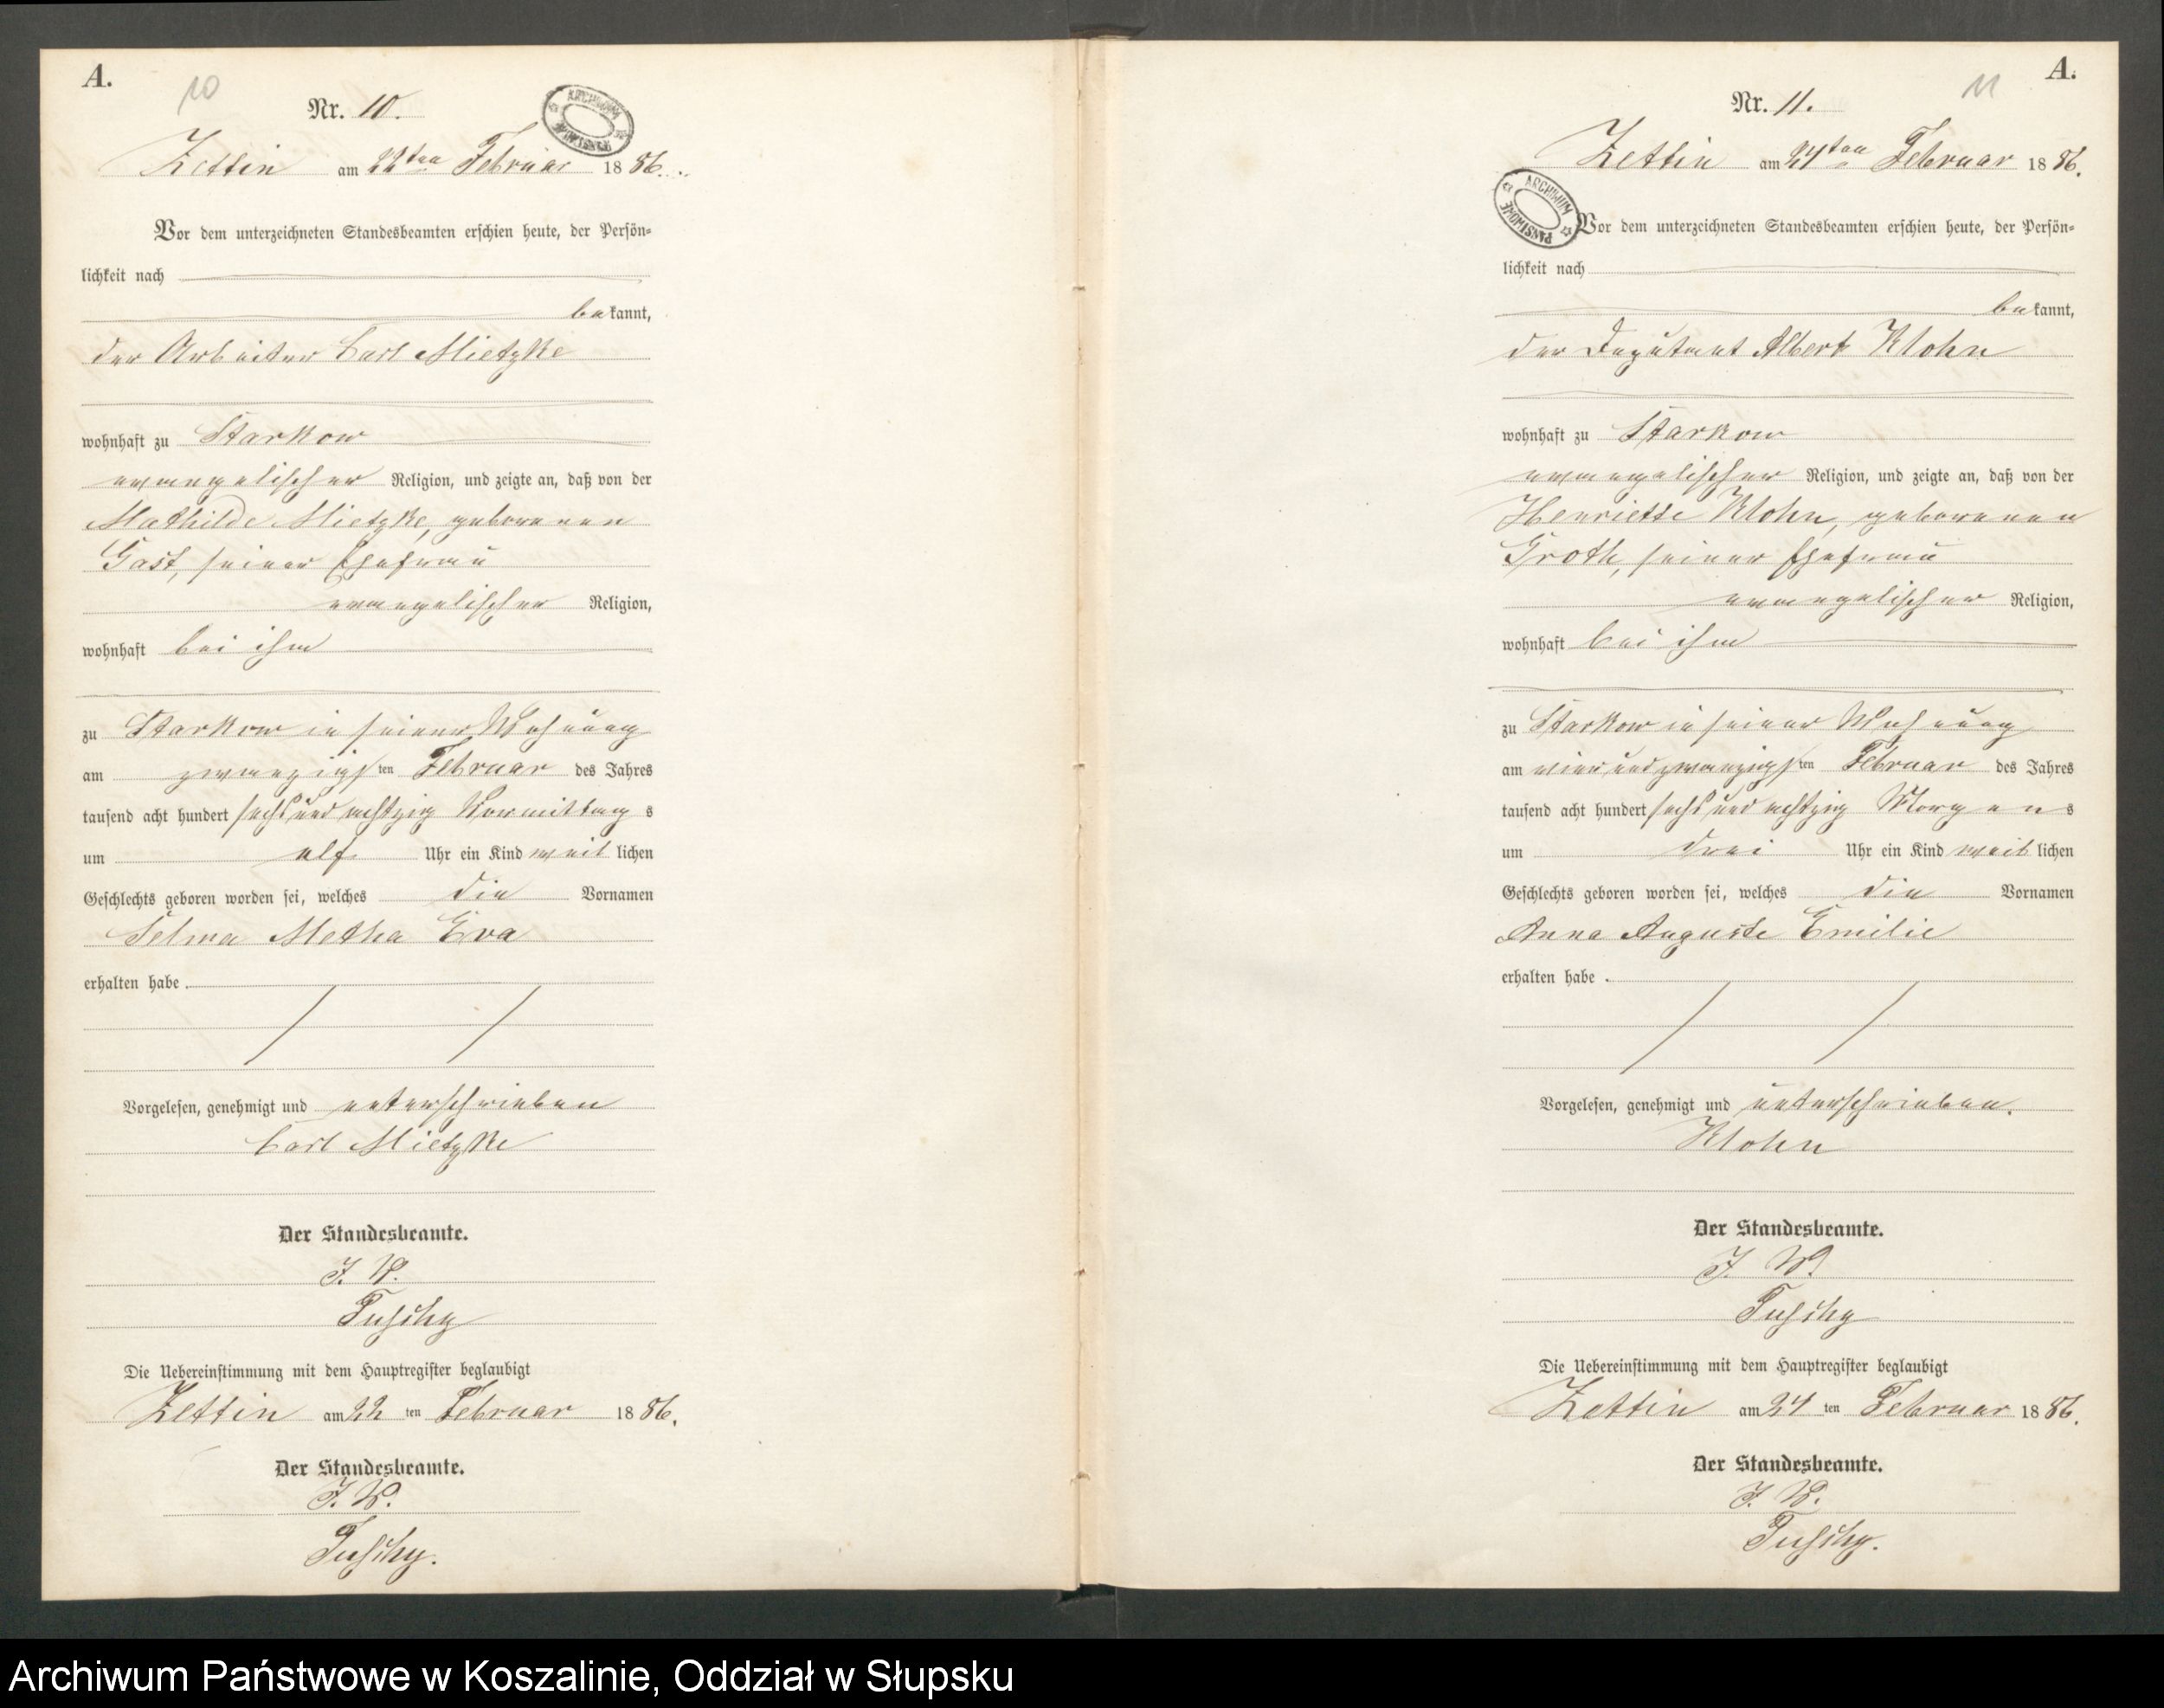 A.
10
Nr. 10.
ARCHIWUM PAŃSTWOWE
Zettin am 22ten Februar 1886.
Vor dem unterzeichneten Standesbeamten erschien heute, der Persön-
lichkeit nach
bekannt,
der Arbeiter Carl Mietzke
wohnhaft zu Starkow
evangelischer Religion, und zeigte an, daß von der
Mathilde Mietzke, geborenen
Gast, seiner Ehefrau
evangelischer Religion,
wohnhaft bei ihm
zu Starkow in seiner Wohnung
am zwanzigsten Februar des Jahres
tausend acht hundert sechs und achtzig Vormittags
um elf Uhr ein Kind weiblichen
Geschlechts geboren worden sei, welches die Vornamen
Selma Metha Eva
erhalten habe.
Vorgelesen, genehmigt und unterschrieben
Carl Mietzke
Der Standesbeamte.
J. V.
Die Uebereinstimmung mit dem Hauptregister beglaubigt
Zettin am 22ten Februar 1886.
Der Standesbeamte.
J. V.
A.
11
Nr. 11.
Zettin am 24ten Februar 1886.
ARCHIWUM PAŃSTWOWE
Vor dem unterzeichneten Standesbeamten erschien heute, der Persön-
lichkeit nach
bekannt,
der Deputant Albert Klohn
wohnhaft zu Starkow
evangelischer Religion, und zeigte an, daß von der
Henriette Klohn, geborenen
Groth, seiner Ehefrau
evangelischer Religion,
wohnhaft bei ihm
zu Starkow in seiner Wohnung
am vier und zwanzigsten Februar des Jahres
tausend acht hundert sechs und achtzig Morgens
um drei Uhr ein Kind weiblichen
Geschlechts geboren worden sei, welches die Vornamen
Anna Auguste Emilie
erhalten habe.
Vorgelesen, genehmigt und unterschrieben.
Klohn
Der Standesbeamte.
J. V.
Die Uebereinstimmung mit dem Hauptregister beglaubigt
Zettin am 24ten Februar 1886.
Der Standesbeamte.
J. V.
Archiwum Państwowe w Koszalinie, Oddział w Słupsku